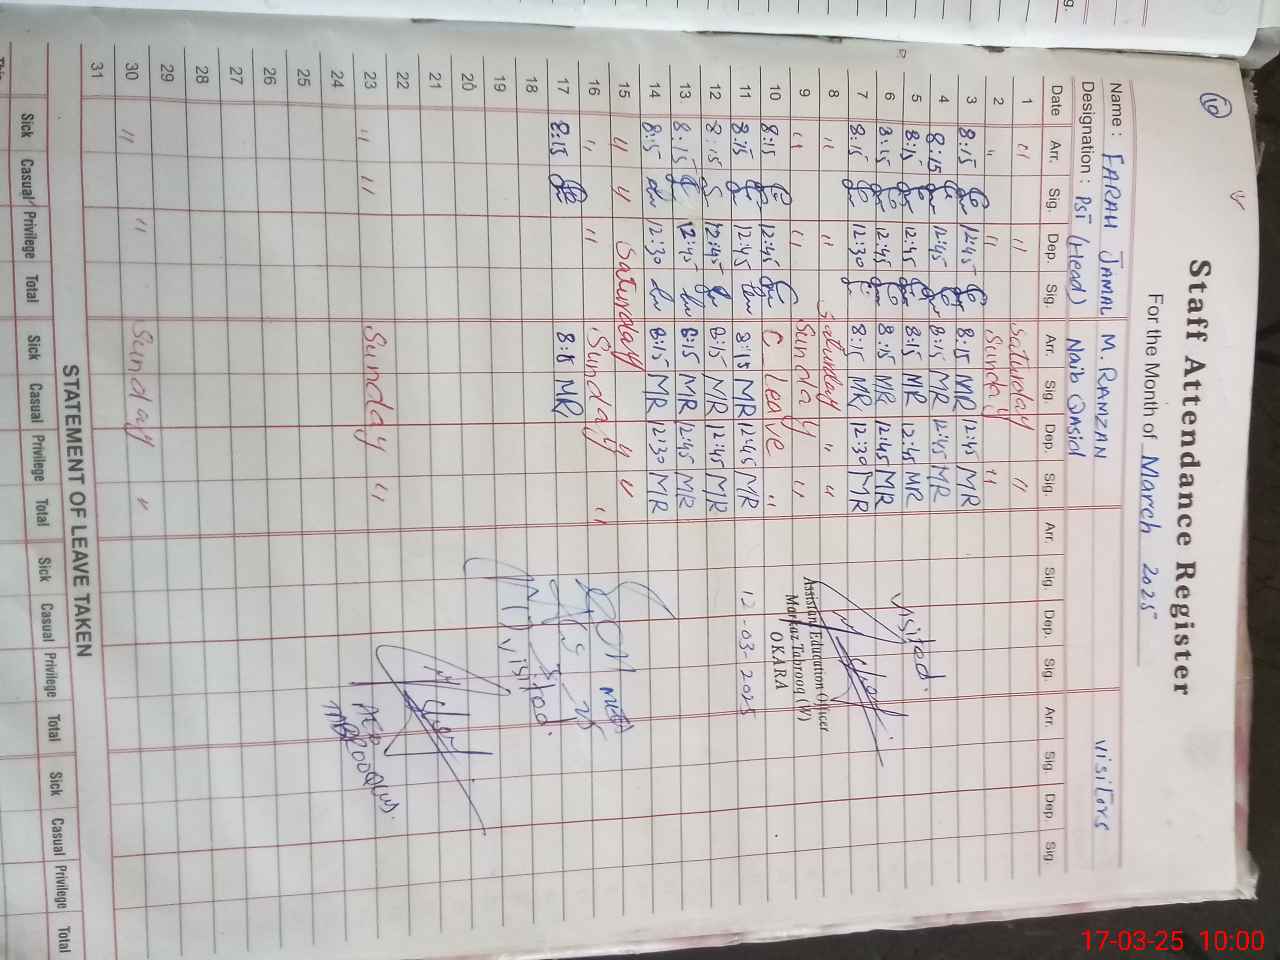 10
Staff Attendance Register
For the Month of March 2025
Name : FARAH JAMAL M. RAMZAN visitors
Designation : PST (Head) Naib Qasid
Date Arr. Sig. Dep. Sig. Arr. Sig. Dep. Sig. Arr. Sig. Dep. Sig. Arr. Sig. Dep. Sig.
1 " " Saturday "
2 " " Sunday "
3 8:15 12:45 8:15 MR 12:45 MR
4 8:15 12:45 8:15 MR 12:45 MR
5 8:15 12:45 8:15 MR 12:45 MR visited.
6 8:15 12:45 8:15 MR 12:45 MR
7 8:15 12:30 8:15 MR 12:30 MR
8 " " Saturday " "
Assistant Education Officer
9 " " Sunday "
Markaz Tabrooq (W)
OKARA
10 8:15 12:45 C Leave "
11 8:15 12:45 8:15 MR 12:45 MR 12-03-2025
12 8:15 12:45 8:15 MR 12:45 MR
13 8:15 12:45 8:15 MR 12:45 MR
14 8:15 12:30 8:15 MR 12:30 MR
15 " " Saturday " "
16 " " Sunday "
17 8:15 8:15 MR
18 visited.
19
20
21
22
23 " " Sunday "
AEO
24 TABROOQ (W).
25
26
27
28
29
30 " " Sunday "
31
STATEMENT OF LEAVE TAKEN
Sick Casual Privilege Total Sick Casual Privilege Total Sick Casual Privilege Total Sick Casual Privilege Total
17-03-25 10:00